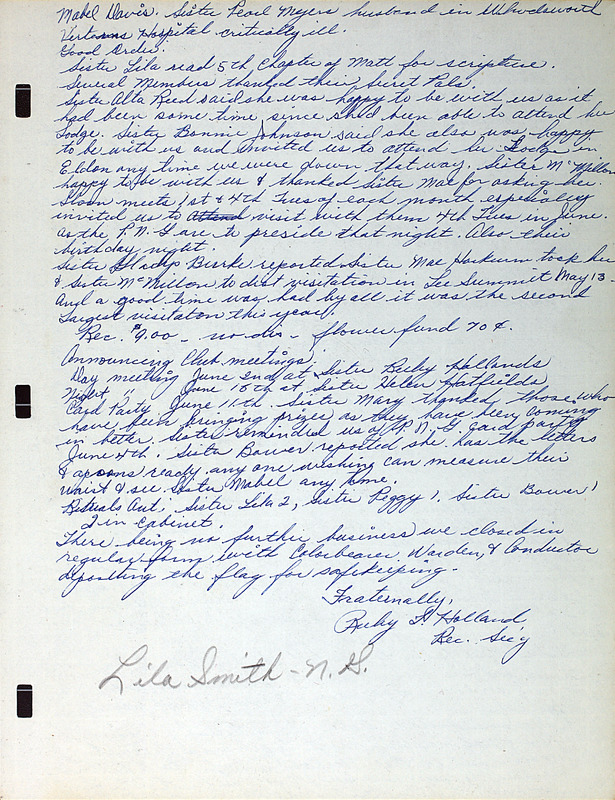 Mabel Davis. Sister Pearl Meyers husband in Wadsworth
Veterans Hospital critically ill.
Good Order.
Sister Lila read 5th Chapter of Matt for scripture.
Several Members thanked their Secret Pals.
Sister Alta Reed said she was happy to be with us as it
had been some time since she'd been able to attend her
Lodge. Sister Bonnie Johnson said she also was happy
to be with us and invited us to attend her Lodge in
Eldon any time we were down that way. Sister McMillon
happy to be with us & thanked Sister Mae for asking her.
meets 1st & 4th Tues of each month especially
invited us to attend visit with them 4th Tues in June.
as the P.N.G are to preside that night. Also their
birthday night.
Sister Gladys Burke reported Sister Mae took her
& Sister McMillon to dist visitation in Lee Summit May 13-
And a good time was had by all it was the second
largest visitation this year.
Rec. $9.00 - no dis - flower fund 70¢.
Announcing Club meetings.
Day meeting June 2nd at Sister Ruby Hollands
Night " June 18th at Sister Helen Hatfields
Card Party June 11th. Sister Mary thanked those who
have been bringing prizes as they have been coming
in better. Sister reminded us of P.N.G card party
June 4th. Sister Bower reported she has the letters
& aprons ready. any one wishing can measure their
waist & see Sister Mabel any time.
Rituals Out, Sister Lila 2, Sister Peggy 1, Sister Bower 1
2 in Cabinet.
There being no further business we closed in
regular form with Colorbearer Warden, & Conductor
depositing the flag for safekeeping.
Fraternally,
Ruby Holland
Rec. Sec'y
Lila Smith - N.G.